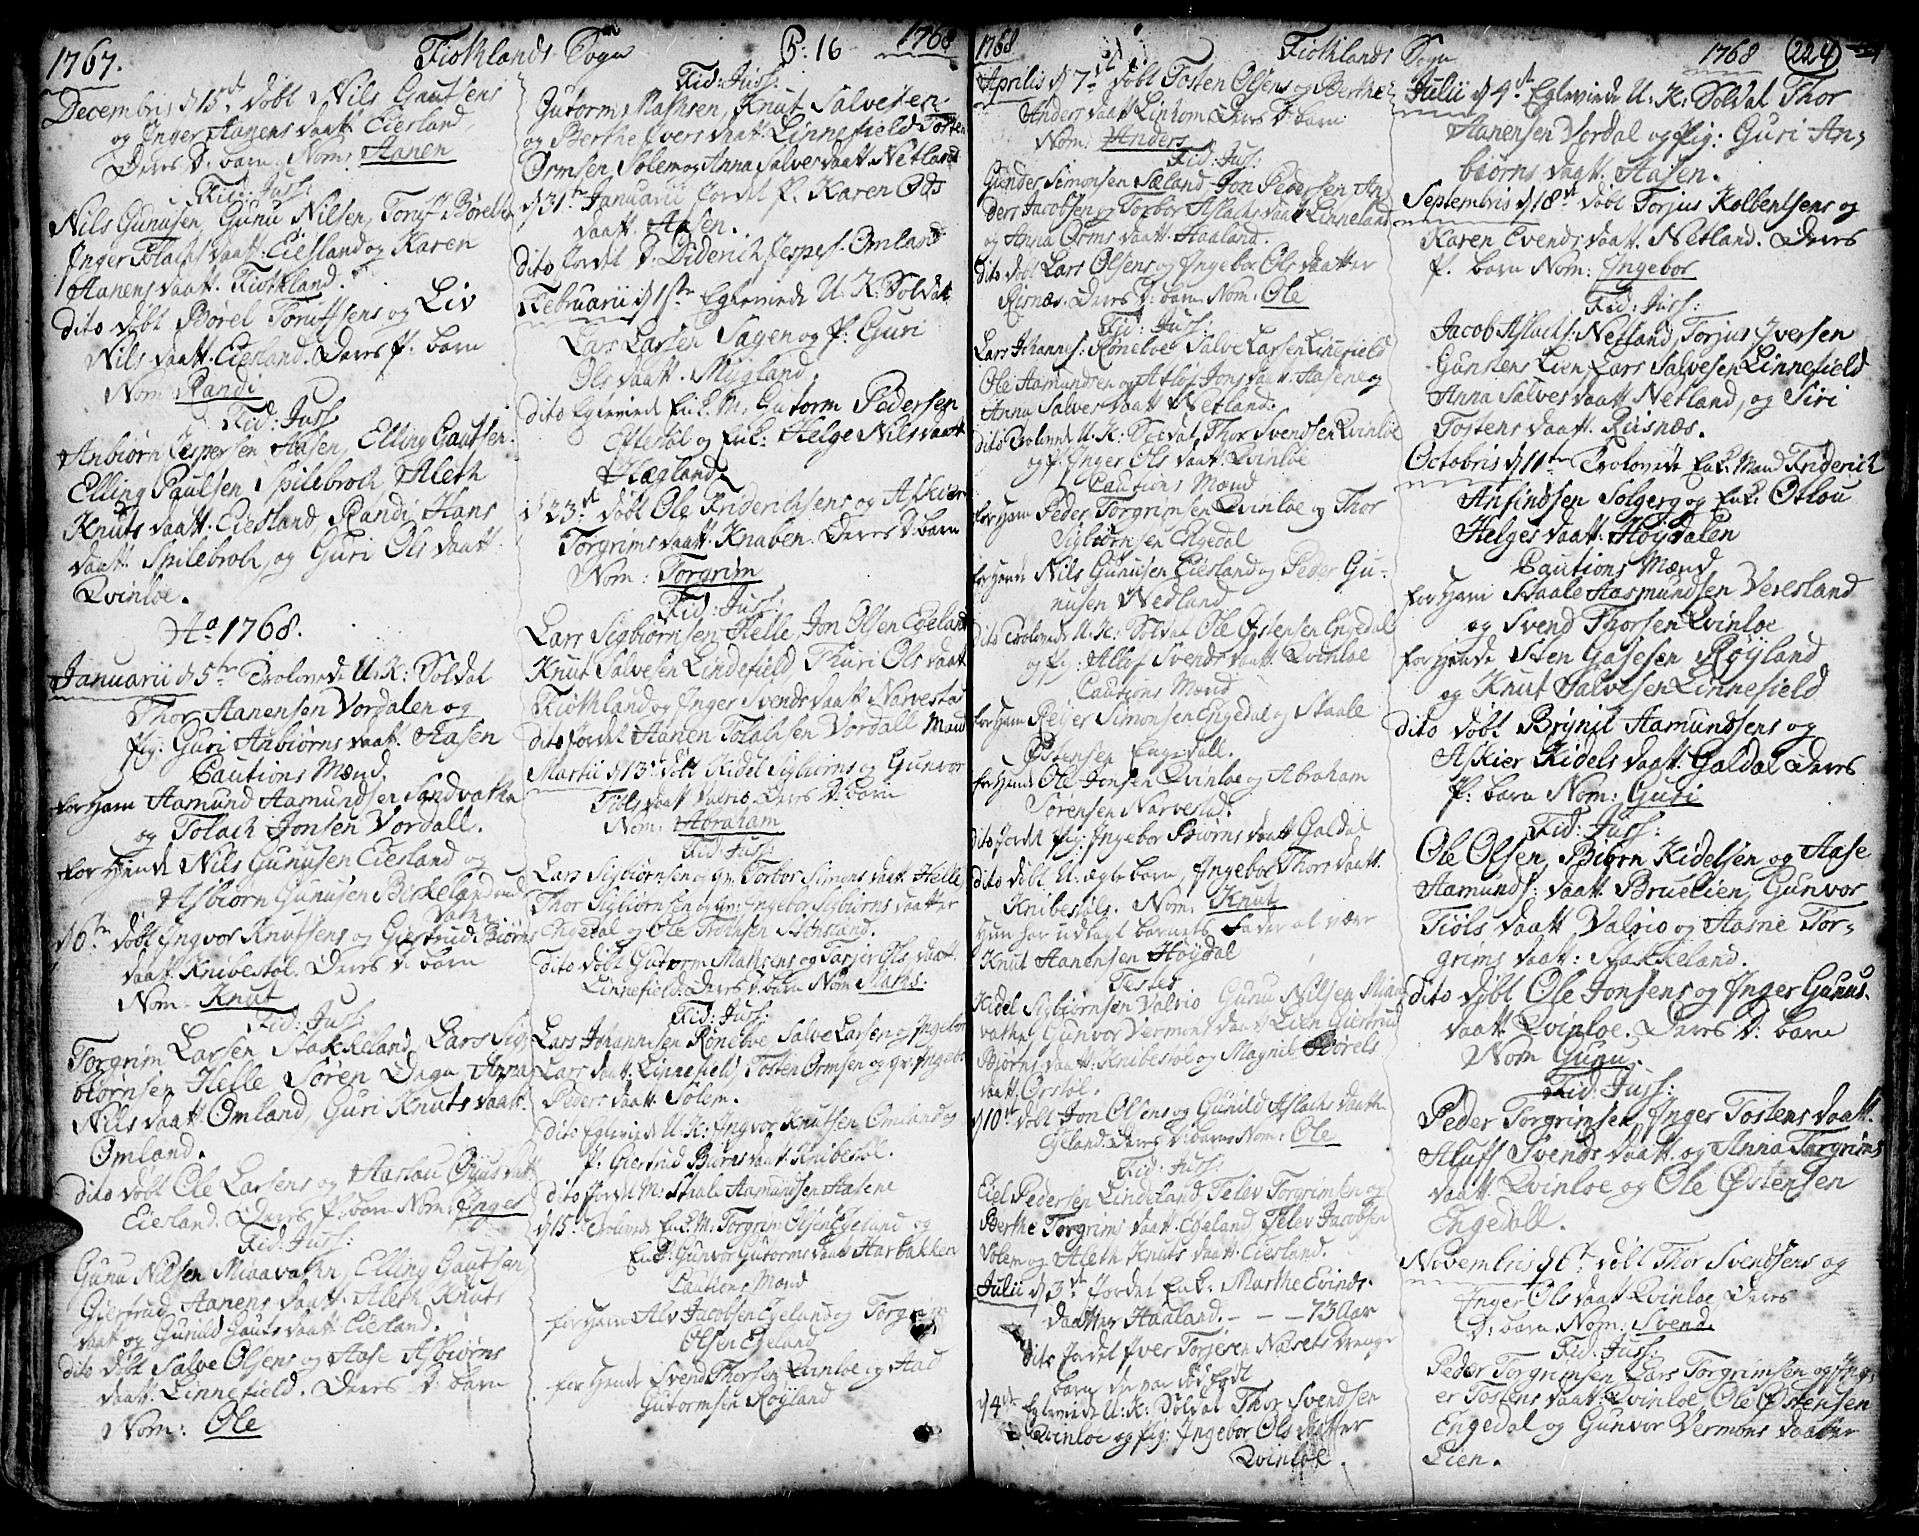 1767. Fiotlands Sogn P: 16 1768
Decembris d 15de döbt Nils Gautsens
og Inger Aanens daatt. Eiersland,
Deres D: barn. Nom: Aanen
Fid: Juss:
Nils Gunusen, Gunu Nilsen, Börel
Inger Tolachs daatt: Eiesland og Karen
Aanens daatt. Fiotland.
dito döbt Börel Toruffsens og Liv
Nils daatt. Eiersland. Deres P. barn
Nom: Randi
Fid: Juss:
Anbiörn Jespersen Aasen, Elling Gautsen.
Elling Paulsen Spilebroch Aleth
Knuts daatt. Eiesland, Randi Hans
daatt. Spilebroch, og Guri Ols daatt.
Qvinloe.
Ao 1768.
Januarii d 5te Trolovede U: K: Soldat
Thor Aanensen Vordalen og
Pig: Guri Anbiörns daatt. Aasen
Cautions Mænd
for Ham Aamund Aamundsen Sandvathn
og Tolach Jonsen Vordall.
for Hende Nils Gunusen Eiesland og
Asbiörn Gunusen Birkeland
d 6te döbt Ingvor Knutsens og Giertrud Biörns
daatt. Knibestöl. Deres D: barn
Nom: Knut
Fid: Juss:
Torgrim Larsen Stakkeland, Lars Sig-
biörnsen Helle, Sören Anna
Nils daatt Omland, Guri Knuts daatt.
Omland.
dito döbt Ole Larsens og Aaslau daatt
Eiesland. Deres P: barn Nom: Inger
Fid: Juss:
Gunu Nilsen Miaavathn, Elling Gautsen
Giertrud Aanens daatt. Aleth Knuts
daatt og Gunild Gauts daatt Eiesland.
dito döbt Salve Olsens og Aase Asbiörns
daatt. Linnefield. Deres D: barn
Nom: Ole
Fid: Juss:
Gutorm Mathsen, Knut Salvesen
og Berthe Ivers daatt. Linnefield Tosten
Ormsen Solem og Anna Salves daatt. Netland
d 31te Januarii jordet P. Karen Ols
daatt. Aasen.
dito jordet D. Diderich Jespes. Omland
Februarii d 1ste Egteviede U. K: Soldat
Lars Larsen Hagen og P. Guri
Ols daatt. Mygland
dito Egteviede Enk. M. Gutorm Pedersen
Eftestöl og Enk: Helge Nils daatt
Hægland
d 23de döbt Ole Friderichsens og Askier
Torgrims daatt. Knaben. Deres D: barn
Nom: Torgrim
Fid: Juss:
Lars Sigbiörnsen Helle, Jon Olsen Egeland
Knut Salvesen Lindefield, Thuri Ols daatt
Fiothland og Inger Svends daatt Narvestad
dito jordet Aanen Tolachsen Vordall Mand
Martii d 13de döbt Kidel Sigbiörns og Gunvor
Tiöls daatt Valrio. Deres D: barn
Nom: Abraham
Fid: Juss:
Lars Sigbiörnsen og qv. Torbor Simons daatt Helle,
Thor Sigbiörnsen og qv: Ingebor Sigbiörns daatter
Engedal og Ole
dito döbt Gutorm Mathsens og Tarjer Ols daatt.
Linnefield. Deres D: barn Nom: Maths:
Fid: Juss:
Lars Johannesen Röneloe Salve Larsen og Ingebor
Lars daatt: Linnefield, Tosten Ormsen og qv: Ingebor
Peders daatt Solem.
dito Egteviede U: K: Ingvor Knutsen Omland og
P. Giertrud Biörns daatt Knibestöl.
dito jordet M. Staale Aamundsen Aasene
d 15de Trolovede Enk. M. Torgrim Olsen Egeland og
Enk: Gunvor Gutorms daatt Harbakken
Cautions Mænd
for Ham Alv Jacobsen Egeland og Torgrim
Olsen Egeland
for Hende Svend Thorsen Qvinloe og Aad
Gutormsen Röyland
1768 Fiothlands Sogn 1768 224
Aprilis d 7de döbt Tosten Olsens og Berthe
Anders daatt Lindom. Deres D: barn
Nom: Anders
Fid: Juss:
Gunder Simonsen Sæland, Jon Pedersen, An-
ders Jacobsen og Torbor Aslachs daatt Linneland
og Anna Orms daatt. Haaland.
dito döbt Lars Olsens og Ingebor Ols daatter
Risnæs. Deres D: barn Nom: Ole
Fid: Juss:
Lars Johannes. Röneloe Salve Larsen Linefield
Ole Aamundsen og Atlof Jons daatt. Aasene og
Anna Salves daatt Netland.
dito Trolovede U: K: Soldat Thor Svendsen Qvinloe
og P. Inger Ols daatt. Qvinloe
Cautions Mænd
for Ham Peder Torgrimsen Qvinloe og Thor
Sigbiörnsen Engedal
for Hende Nils Gunusen Eiesland og Peder Gu-
nusen Nedland
dito Trolovede U: K: Soldat Ole Östensen Engedal
og P: Allof Svends daatt Qvinloe
Cautions Mænd
for Ham Reijer Simonsen Engedal og Staale
Östensen Engedall.
for Hende Ole Jonsen Qvinloe og Abraham
Sörensen Narvestad.
dito jordet Pig: Ingebor Biörns daatt Galdal
dito döbt U: ægte barn, Ingebor Thors daatt.
Knibestöls. Nom: Knut
Hun har udlagt barnets Fader at være
Knut Aanensen Höydal
Testes
Kidel Sigbiörnsen Valrio Gunu Nilsen Miaa
vathn, Gunvor Vermons daatt Lien Giertrud
Biörns daatt. Knibestöl og Magnil Börels
daatt. Örstöl.
d 10de döbt Jon Olsens og Gunild Aslachs daatter
Egeland. Deres D: barn Nom: Ole
Fid: Juss:
Eiel Pedersen Lindeland, Telev Torgrimsen og
Berthe Torgrims daatt. Egeland Telev Jacobsen
Solem og Aleth Knuts daatt. Eiesland.
Julii d 3de jordet Enk: Marthe Evinds-
daatter Haaland. - - - 73 Aar
dito jordet Iver Torjesen Næsets drenge
barn der var död född
d 4de Egteviede U: K: Soldat Thor Svendsen
Qvinloe og Pig: Ingebor Ols daatter
Qvinloe.
Julii d 4de Egteviede U: K: Soldat Thor
Aanensen Vordal og Pig: Guri An-
biörns dagt. Aasen.
Septembris d 18de döbt Torjus Kolbentsens og
Karen Evends daatt. Netland. Deres
P. barn Nom: Ingebor
Fid: Juss:
Jacob Aslachs. Netland, Torjus Iversen
Gunkens Lien Lars Salvesen Linnefield
Anna Salves daatt Netland, og Siri
Tostens daatt. Risnæs.
Octobris d 11te Trolovede Enk. Mand Friderich
Anfindsen Solgerg og Enk. Otlou
Helges daatt. Höydalen
Cautions Mænd
for Ham Staale Aasmundsen Veresland
og Svend Thorsen Qvinloe
for Hende Sten Gasesen Röyland
og Knut Salvesen Linnefield
dito döbt Brynil Aamundsens og
Askier Kidels daatt. Galdal Deres
P: barn Nom: Guri
Fid: Juss:
Ole Olsen, Biörn Kidelsen og Aase
Aamunds: daatt Bruelien, Gunvor
Tiöls daatt Valrio og Aasne Tor-
grims daatt: Stakkeland.
dito döbt Ole Jonsens og Inger Gunus-
daatt. Qvinloe. Deres D: barn
Nom Gunu.
Fid: Juss:
Peder Torgrimsen, Inger Tostens daatt.
Aluff Svends daatt. og Anna Torgrims
daatt. Qvinloe og Ole Östensen
Engedall.
Novembris d 6te döbt Thor Svendsens og
Inger Ols daatt Qvinloe, Deres
D: barn Nom: Svend.
Fid: Juss:
Peder Torgrimsen Lars Torgrimsen og Ing-
er Tostens daatt: Qvinloe, Ole Östensen
Engedal og Gunvor Vermons daatter
Lien.